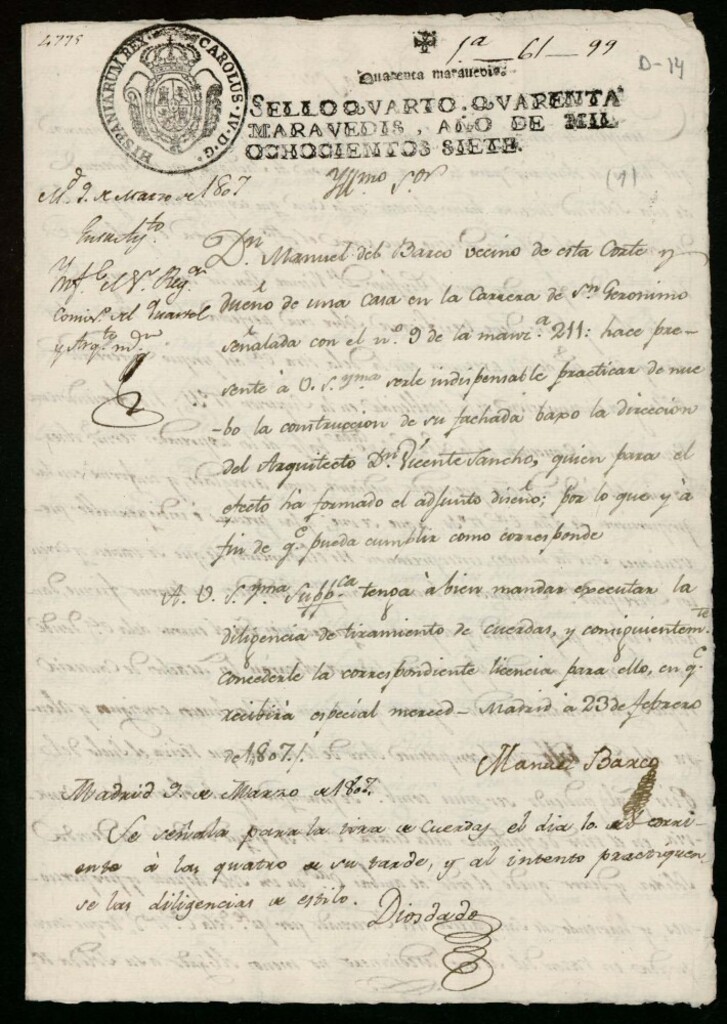 1ª 61-99
D-14
HISPANIARUM REX. CAROLUS. IV. D. G.
Quarenta maravedis.
SELLO QVARTO. QVARENTA
MARAVEDIS, AÑO DE MIL
OCHOCIENTOS SIETE.
Yllmo Sor
(1)
Md 9. de Marzo de 1807
En su Aytto.
Ynfe. el Sr. Regor
Comiso. del Quartel
y Arqto. mor
Dn. Manuel del Barco vecino de esta Corte y
dueño de una casa en la Carrera de Sn Geronimo
señalada con el nº. 9 de la manz.ª 211: hace pre-
sente à V. S. Yma serle indispensable practicar de nue-
-bo la construccion de su fachada baxo la direccion
del Arquitecto Dn. Vicente Sancho, quien para el
efecto ha formado el adjunto diseño; por lo que y à
fin de qe. pueda cumplir como corresponde
A. V. S. Yma Suppca tenga à bien mandar executar la
diligencia de tiramiento de cuerdas, y consiguientemte
concederle la correspondiente licencia para ello, en qe.
recibirà especial merced- Madrid à 23 de febrero
de 1807.
Manuel Barco
Madrid 9. de Marzo de 1807.
Se señala para la tira de Cuerdas el dia 10. del corri-
ente à las quatro de su tarde, y al intento practiquen
se las diligencias de estilo. Diosdado